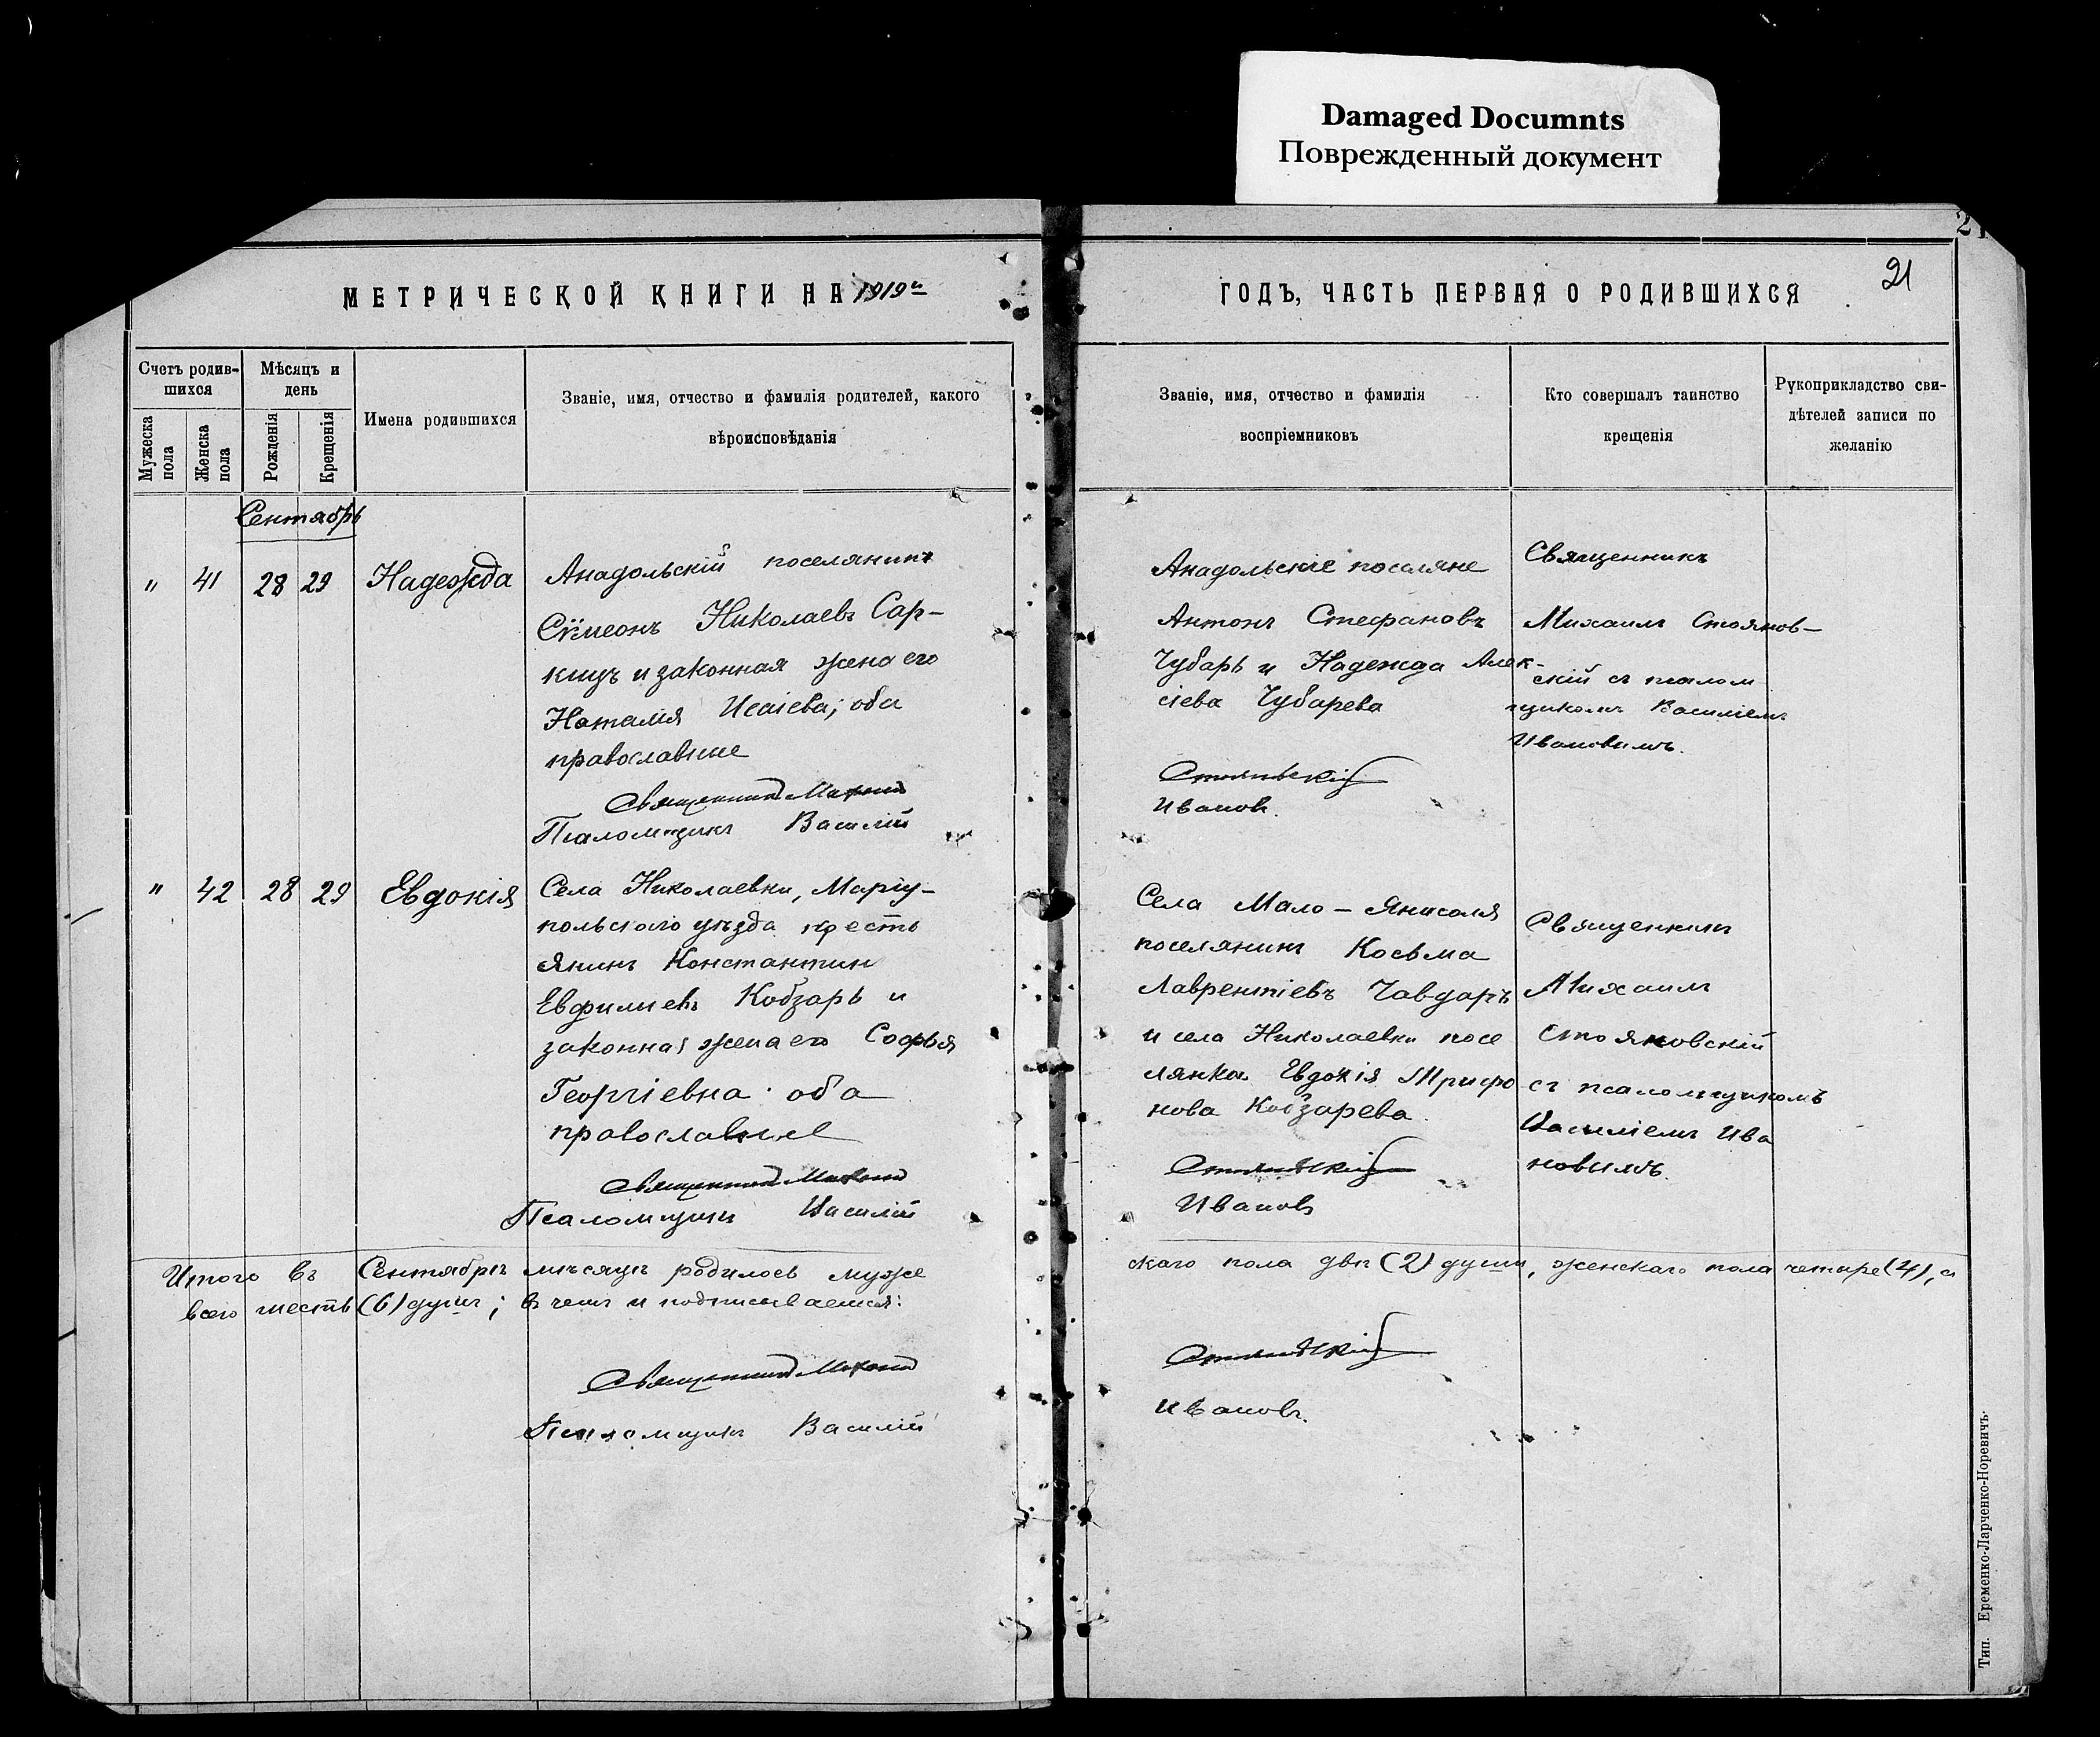 Damaged Documnts
Поврежденный документ
21
МЕТРИЧЕСКОЙ КНИГИ НА 1919й
ГОДЪ, ЧАСТЬ ПЕРВАЯ О РОДИВШИХСЯ
21
Счетъ родив-
шихся
Мужеска пола
Женска пола
Мѣсяцъ и
день
Рожденія
Крещенія
Имена родившихся
Званіе, имя, отчество и фамилія родителей, какого
вѣроисповѣданія
Званіе, имя, отчество и фамилія
воспріемниковъ
Кто совершалъ таинство
крещенія
Рукоприкладство сви-
дѣтелей записи по
желанію
Сентябрь
" 41 28 29 Надежда
Анадольскій поселянинъ
Сѵмеонъ Николаевъ Сар-
и законная жена его
Наталія Исаіева; оба
православные
Священникъ Михаилъ
Псаломщикъ Василій
Анадольскіе поселяне
Антонъ Стефановъ
Чубарь и Надежда Алек-
сіева Чубарева
Стояновскій
Ивановъ.
Священникъ
Михаилъ Стоянов-
скій съ псалом
щикомъ Василіемъ
Ивановымъ.
" 42 28 29 Евдокія
Села Николаевки, Маріу-
польскаго уѣзда кресть
янинъ Константинъ
Евфиміевъ Кобзарь и
законная жена его Софья
Георгіевна; оба
православные
Священникъ Михаилъ
Псаломщикъ Василій
Села Мало-Янисоля
поселянинъ Косьма
Лаврентіевъ Чавдаръ
и села Николаевки посе
лянка Евдокія Трифо
нова Кобзарева.
Стояновскій
Ивановъ
Священникъ
Михаилъ
Стояновскій
съ псаломщикомъ
Василіемъ Ива
новымъ.
Итого въ Сентябрѣ мѣсяцѣ родилось муже
скаго пола двѣ (2) души, женскаго пола четыре (4), а
всего шесть (6) душъ; въ чемъ и подписываемся:
Священникъ Михаилъ
Стояновскій
Псаломщикъ Василій
Ивановъ.
Тип. Еременко-Ларченко-Норевичъ.